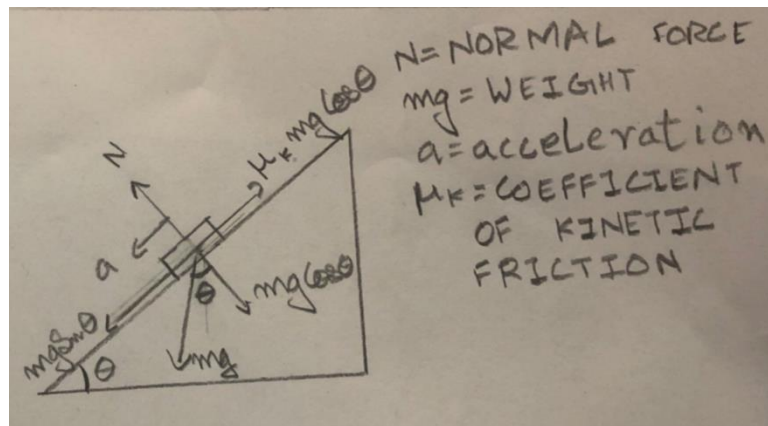 N=NORMAL FORCE
mg=WEIGHT
a=acceleration
μK=COEFFICIENT
OF KINETIC
FRICTION
μK mg Cosθ
N
a
mg Cosθ
θ
mg Sinθ
θ
mg